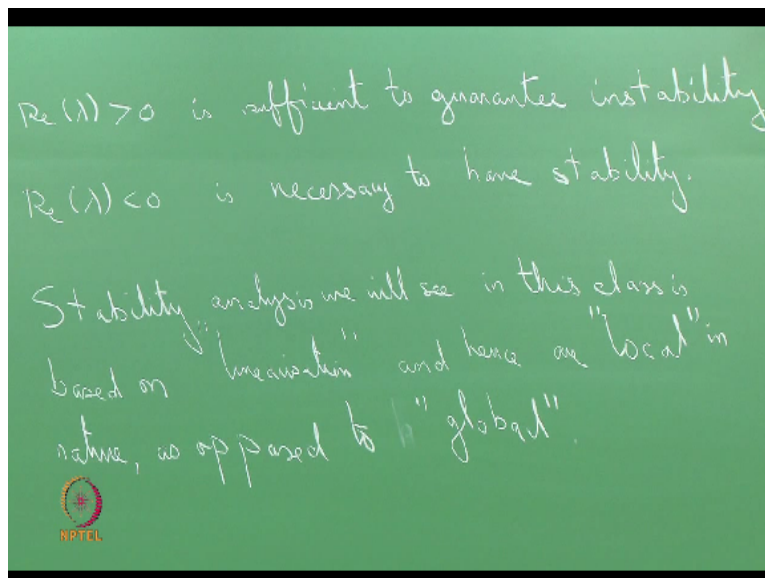 Re(λ) > 0 is sufficient to guarantee instability
Re(λ) < 0 is necessary to have stability.
Stability analysis we will see in this class is
based on "linearisation" and hence are "local" in
nature, as opposed to "global".
NPTEL